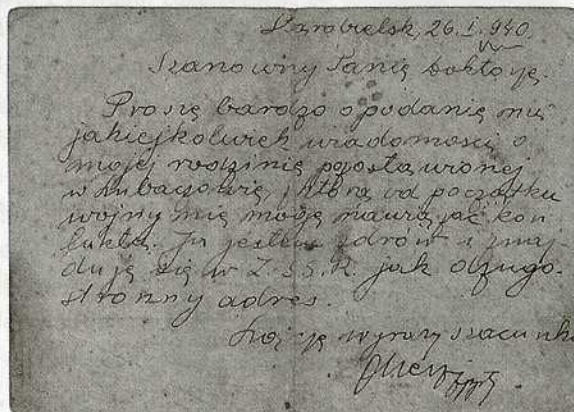 Starobielsk, 26.I.940.
Szanowny Panie Doktorze.
Proszę bardzo o podanie mi
jakiejkolwiek wiadomości o
mojej rodzinie pozostawionej
w Lubaczowie, którą od początku
wojny nie mogę nawiązać kon
taktu. Ja jestem zdrów i znaj-
duję się w Z.S.S.R. jak
stronny adres.
wyrazy szacunku